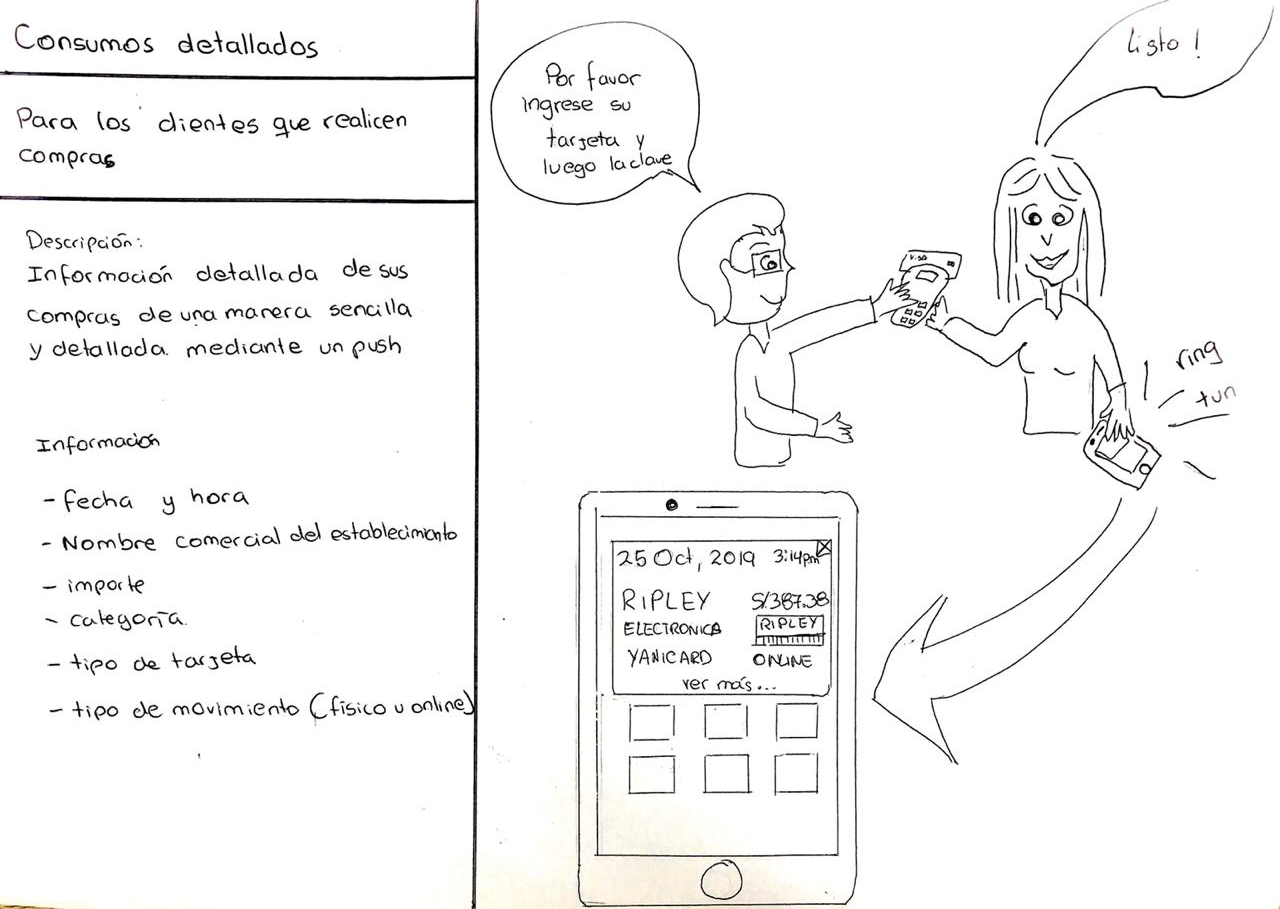 Consumos detallados
Para los clientes que realicen
compras
Descripción:
Información detallada de sus
compras de una manera sencilla
y detallada. mediante un push
Información
- fecha y hora
- Nombre comercial del establecimiento
- importe
- categoría.
- tipo de tarjeta
- tipo de movimiento (físico u online)
Por favor
ingrese su
tarjeta y
luego la clave
Listo!
VISA
ring
tun
25 Oct, 2019 3:14pm
RIPLEY S/.387.38
ELECTRONICA RIPLEY
YANICARD ONLINE
ver más...